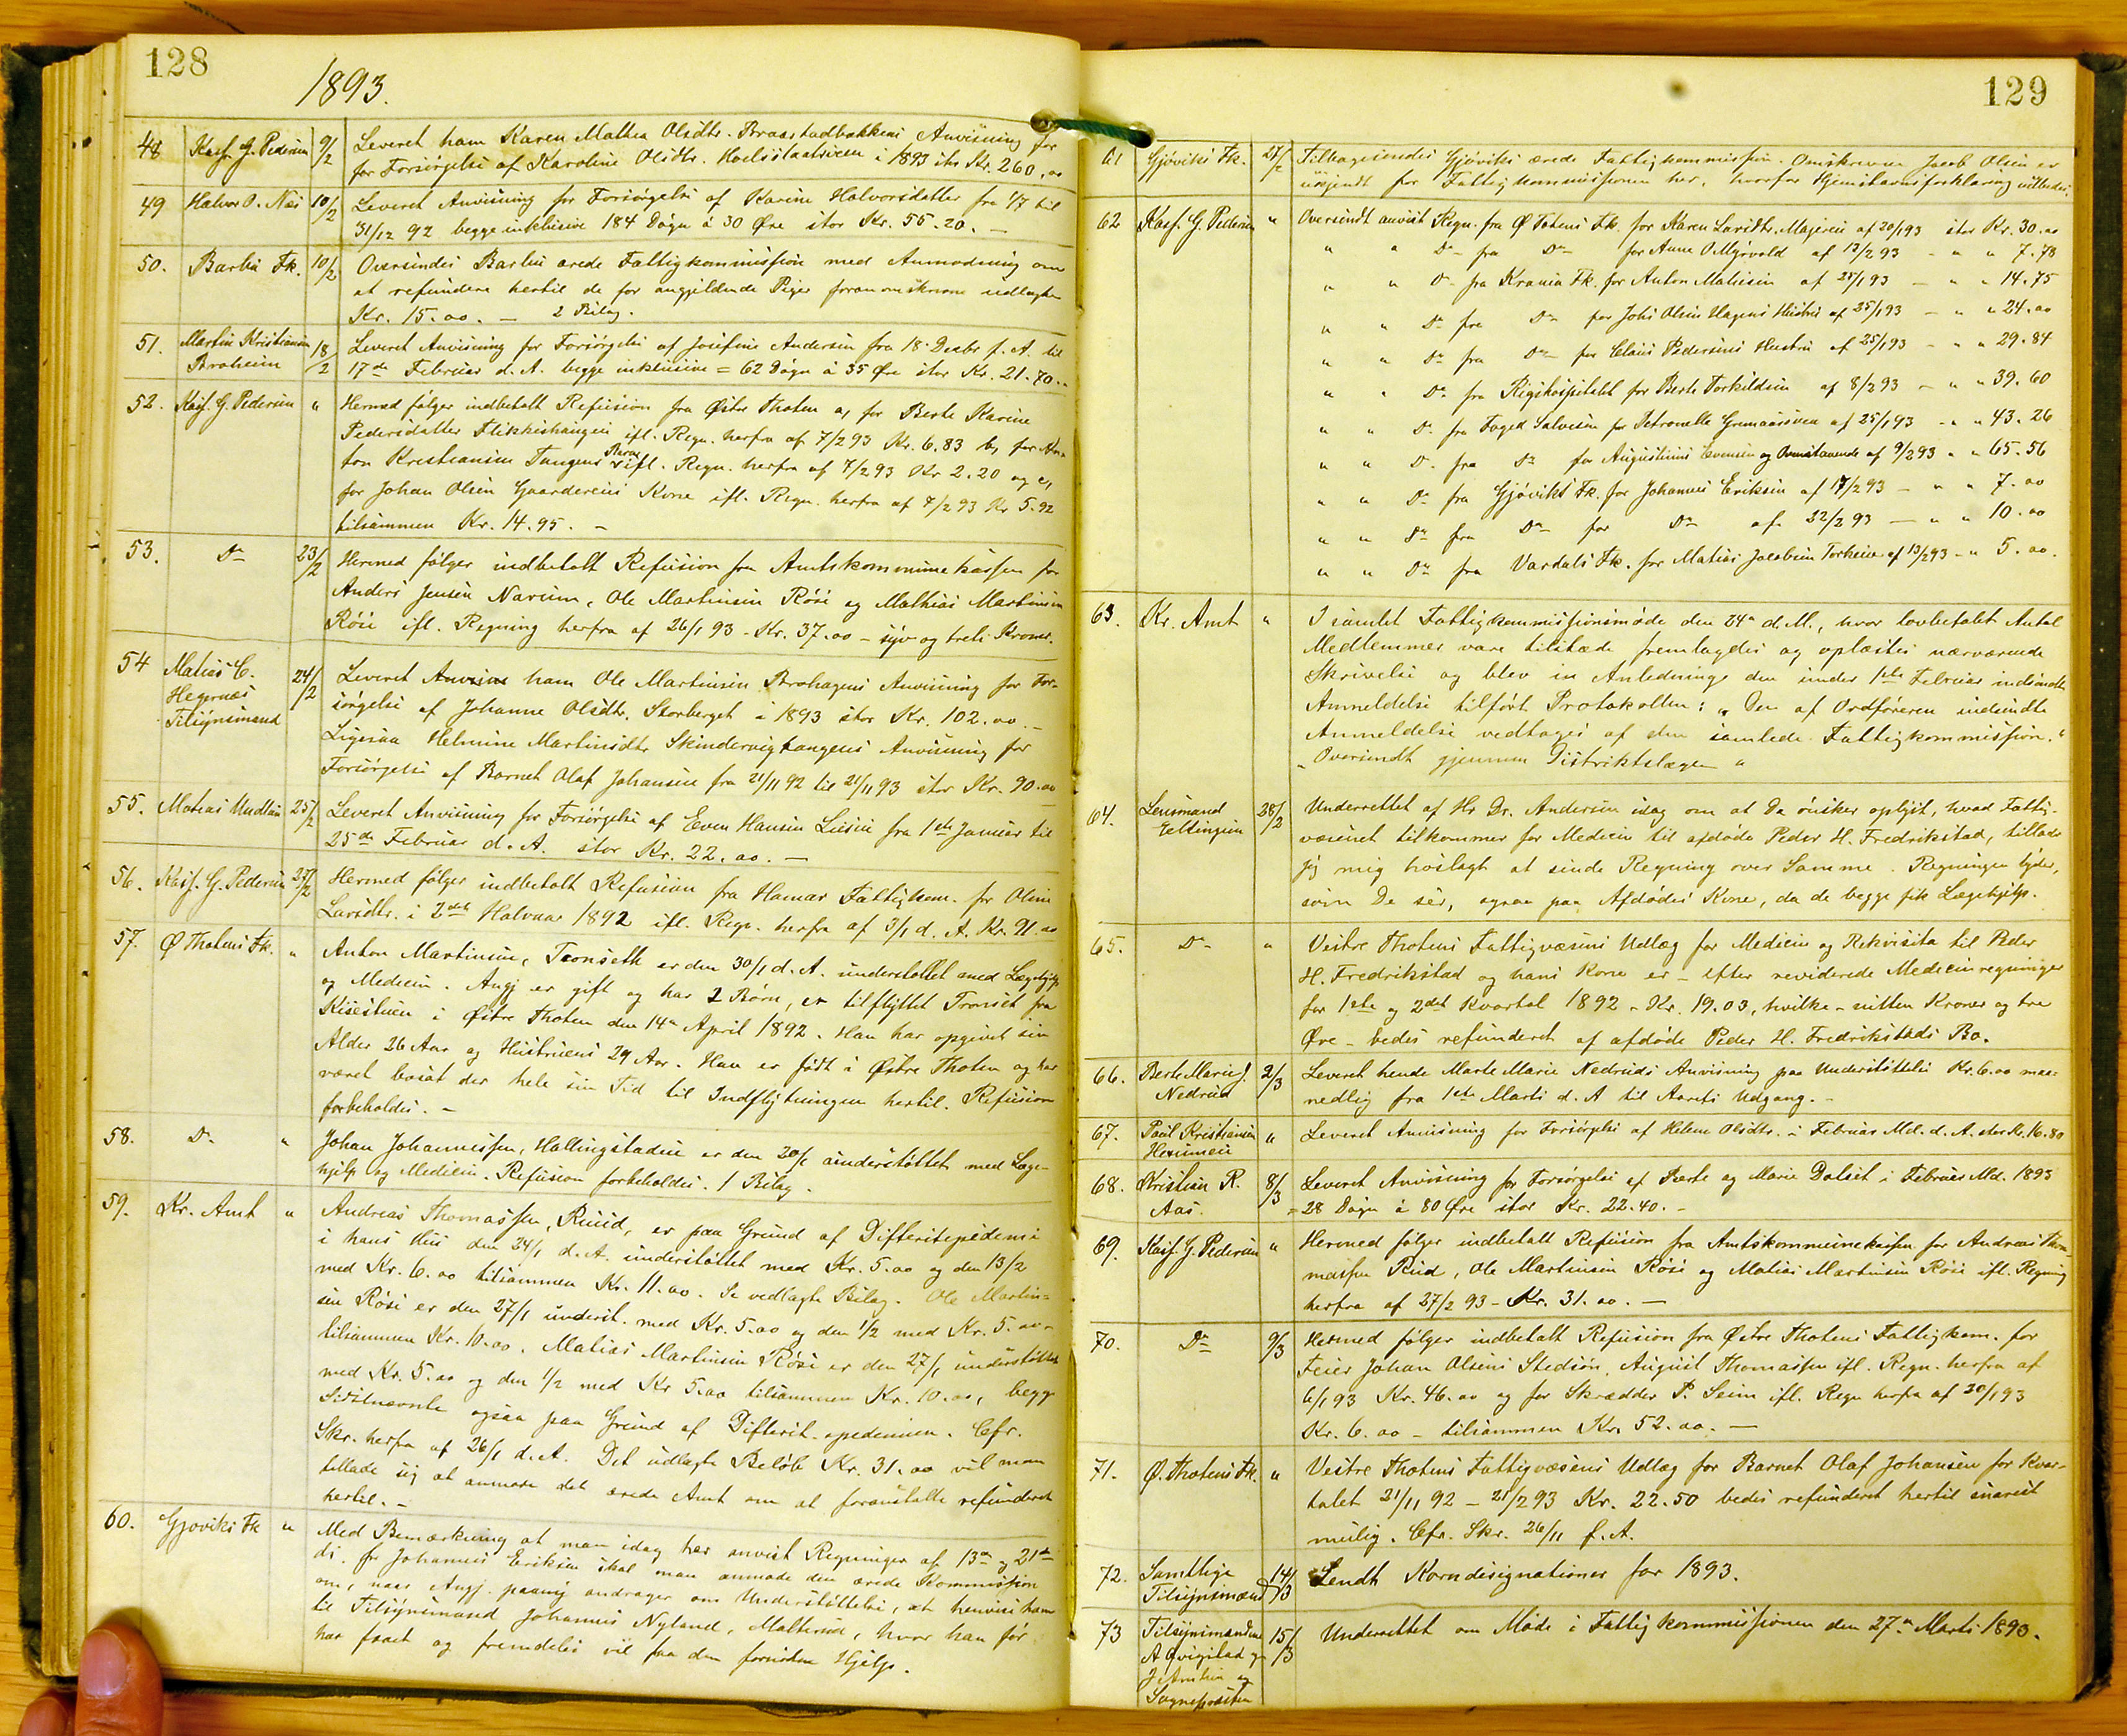 128
1893.
48 Kasf. G. Pedersen 9/2 Leveret ham Karen Mathea Olsdtr. Braastadbakkens Anvisning for
for Forsørgelse af Karoline Olsdtr. i 1893 stor Kr. 260,00
49 Halvor O. Næs 10/2 Leveret Anvisning for Forsørgelse af Karine Halvorsdatter fra 1/7 til
31/12 92 begge inklusive 184 Døgn á 30 Øre stor Kr. 55.20. —
50. Barbu Fk. 10/2 Oversendes Barbu ærede Fattigkommission med Anmodning om
at refundere hertil de for angjeldende Piger foranomskrevne udlagte
Kr. 15.00. — 2 Bilag.
51. Martin Kristiansen Braheim 18/2 Leveret Anvisning for Forsørgelse af Josefine Andersen fra 18. Decbr f. A. til
17de Februar d. A. begge inklusive = 62 Døgn á 35 Øre stor Kr. 21.70.-
52. Kasf. G. Pedersen " Hermed følger indbetalt Refusion fra Østre Thoten a, for Berte Karine
Pedersdatter ifl. Regn. herfra af 7/2 93 Kr. 6.83 b, for An-
ton Kristiansen Tangens Barn ifl. Regn. herfra af 7/2 93 Kr 2.20 og c,
for Johan Olsen Gaardereies Kone ifl. Regn. herfra af 7/2 93 Kr 5.92
tilsammen Kr. 14.95. -
53. Do 23/2 Hermed følger indbetalt Refusion fra Amtskommunekassen for
Anders Jensen Narum, Ole Martinsen Røse og Mathias Martinsen
Røse ifl. Regning herfra af 26/1 93 - Kr. 37.00 - syv og treti Kroner.
54 Matias C. Hegernæs Tilsynsmand 24/2 Leveret ham Ole Martinsen Brohagens Anvisning for For-
sørgelse af Johanne Olsdtr. Storberget i 1893 stor Kr. 102.00. -
Ligesaa Helmine Martinsdtr Skindervigtangens Anvisning for
Forsørgelse af Barnet Olaf Johansen fra 21/11 92 til 21/11 93 stor Kr. 90.00
55. Matias Undlien 25/2 Leveret Anvisning for Forsørgelse af Even Hansen Lusie fra 1ste Januar til
25de Februar d. A. stor Kr. 22.00. —
56. Kasf. G. Pedersen 27/2 Hermed følger indbetalt Refusion fra Hamar Fattigkom. for Oline
Larsdtr. i 2det Halvaar 1892 ifl. Regn. herfra af 3/1 d. A. Kr. 91.00
57. Ø Thotens Fk. " Anton Martinsen, Tronseth er den 30/1 d. A. understøttet med Lægehjelp
og Medicin. Angj er gift og har 2 Børn, er tilflyttet Tronset fra
Kisestuen i Østre Thoten den 14de April 1892. Han har opgivet sin
Alder 26 Aar og Hustruens 29 Aar. Han er født i Østre Thoten og har
været bosat der hele sin Tid til Indflytningen hertil. Refusion
forbeholdes. -
58. Do " Johan Johannessen, Hallingstadeie er den 20/1 understøttet med Læge-
hjelp og Medicin. Refusion forbeholdes. 1 Bilag.
59. Kr. Amt " Andreas Thomassen, Ruud, er paa Grund af Difteritepidemi
i hans Hus den 24/1 d. A. understøttet med Kr. 5.00 og den 13/2
med Kr. 6.00 tilsammen Kr. 11.00. Se vedlagte Bilag. Ole Martin-
sen Røse er den 27/1 underst. med Kr. 5.00 og den 1/2 med Kr. 5.00 -
tilsammen Kr. 10.00. Matias Martinsen Røse er den 27/1 understøttet
med Kr. 5.00 og den 1/2 med Kr 5.00 tilsammen Kr. 10.00, begge
Sidstnævnte ogsaa paa Grund af Difterit-epedemien. Cfr.
Skr. herfra af 26/1 d. A. Det udlagte Beløb Kr. 31.00 vil man
tillade sig at anmode det ærede Amt om at foranstalte refunderet
hertil. -
60. Gjøviks Fk " Med Bemærkning at man idag har anvist Regninger af 13de og 21de
ds. for Johannes Eriksen skal man anmode den ærede Kommission
om, naar Angj. paany andrager om Understøttelse, at henvise ham
til Tilsynsmand Johannes Nyland, hvor han før
har faaet og fremdeles vil faa den fornødne Hjelp.
129
61 Gjøviks Fk. 27/2 Tilbagesendes Gjøviks ærede Fattigkommission. Omskrevne Jacob Olsen er
ukjendt for Fattigkommissionen her, hvorfor Hjemstavnsforklaring udbedes.
62 Kasf. G. Pedersen " Oversendt anvist Regn. fra Ø Totens Fk. for Karen Larsdtr. Majereie af 20/1 93 stor Kr. 30.00
" " Do fra Do for Anne O. Myrvold af 13/2 93 - " " 7.78
" " Do fra Krania Fk. for Anton Mathisen af 25/1 93 - " " 14.75
" " Do fra Do for Johs Olsen Hagens Hustru af 25/1 93 - " " 24.00
" " Do fra Do for Claus Pedersens Hustru af 25/1 93 - " " 29.84
" " Do fra Rigshospitalet for Berte Torkildsen af 8/2 93 - " " 39.60
" " Do fra Foged Salvesen for Petronelle Gunnarsveen af 25/1 93 - " " 43.26
" " Do fra Do for Augustinus Evensen og Ovenstaaende af 9/2 93 " " 65.56
" " Do fra Gjøviks Fk. for Johannes Eriksen af 17/2 93 - " " 7.00
" " Do fra Do for Do af 22/2 93 - " " 10.00
" " Do fra Vardals Fk. for Matias Jacobsen af 13/2 93 - " 5.00.
63. Kr. Amt " I samlet Fattigkommissionsmøde den 24de d. M., hvor lovbefalet Antal
Medlemmer vare tilstæde fremlagdes og oplæstes nærværende
Skrivelse og blev in Anledning den under 1ste Februar indsendte
Anmeldelse tilført Protokollen: „Den af Ordføreren indsendte
Anmeldelse vedtages af den samlede Fattigkommission."
„Oversendt gjennem Distriktslægen "
64. Lensmand Eellingsen 28/2 Underrettet af Hr. Dr. Andersen idag om at De ønsker oplyst, hvad Fattig-
væsenet tilkommer for Medicin til afdøde Peder H. Fredrikstad, tillader
jeg mig hoslagt at sende Regning over Samme. Regningen lyder,
som De ser, ogsaa paa Afdødes Kone, da de begge fik Lægehjelp.
65. Do " Vestre Thotens Fattigvæsens Udlæg for Medicin og Rekvisita til Peder
H. Fredrikstad og hans Kone er - efter reviderede Medicinregninger
for 1ste og 2det Kvartal 1892 - Kr. 19.03, hvilke - nitten Kroner og tre
Øre - bedes refunderet af afdøde Peder H. Fredrikstads Bo.
66. Berte Marie J. Nedrud 2/3 Leveret hende Marte Marie Nedruds Anvisning paa Understøttelse Kr. 6.00 maa-
nedlig fra 1ste Marts d. A til Aarets Udgang. -
67. Poul Kristiansen " Leveret Anvisning for Forsørgelse af Helene Olsdtr. i Februar Md. d. A. stor Kr. 16.80
68. Kristian R. Aas. 8/3 Leveret Anvisning for Forsørgelse af Berte og Marie Dalset i Februar Md. 1893
= 28 Døgn á 80 Øre stor Kr. 22.40. -
69. Kasf. G. Pedersen " Hermed følger indbetalt Refusion fra Amtskommunekassen for Andreas Thom-
massen Rud, Ole Martinsen Røse og Matias Martinsen Røse ifl. Regning
herfra af 27/2 93 - Kr. 31.00. —
70. Do 9/3 Hermed følger indbetalt Refusion fra Østre Thotens Fattigkom. for
Feier Johan Olsens Stedsøn, August Thomassen ifl. Regn. herfra af
6/1 93 Kr. 46.00 og for Skrædder P. Seim ifl. Regn herfra af 20/1 93
Kr. 6.00 - tilsammen Kr. 52.00. —
71. Ø. Thotens Fk. " Vestre Thotens Fattigvæsens Udlæg for Barnet Olaf Johansen for Kvar-
talet 21/11 92 - 21/2 93 Kr. 22.50 bedes refunderet hertil snarest
mulig. Cfr. Skr. 26/11 f. A.
72. Samtlige Tilsynsmænd 14/3 Sendt Korndesignationer for 1893.
73 Tilsynsmændene A Qvigstad og Sognepresten 15/3 Underrettet om Møde i Fattigkommissionen den 27de Marts 1893.